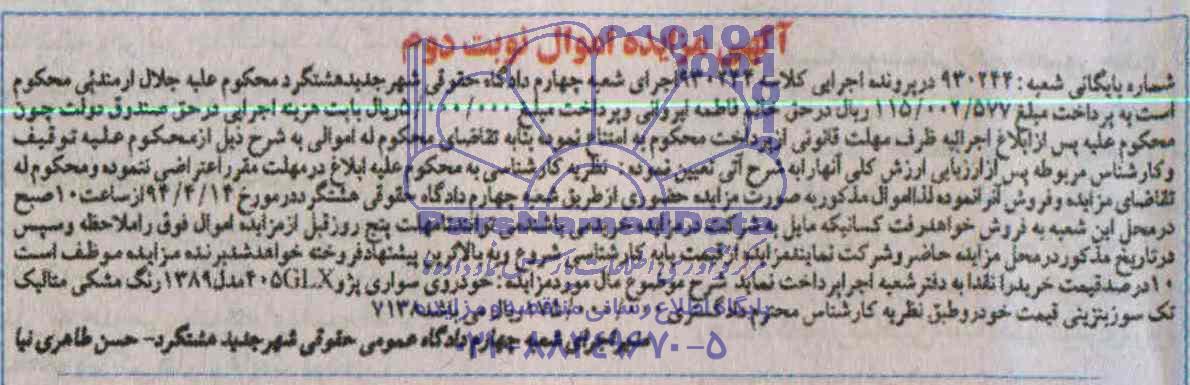 آگهی مزایده اموال نوبت دوم
شماره بایگانی شعبه: ۹۳۰۲۴۴ درپرونده اجرایی کلاسه ۹۳۰۲۴۴اجرای شعبه چهارم دادگاه حقوقی شهرجدیدهشتگرد محکوم علیه جلال ارمندئی محکوم
است به پرداخت مبلغ ریال درحق خانم فاطمه ایروانی وپرداخت مبلغ ریال بابت هزینه اجرایی درحق صندوق دولت چون
محکوم علیه پس ازابلاغ اجرائیه ظرف مهلت قانونی ازپرداخت محکوم به امتناع نموده بنابه تقاضای محکوم له اموالی به شرح ذیل ازمحکوم علیه توقیف
وکارشناس مربوطه پس ازارزیابی ارزش کلی آنهارابه شرح آتی تعیین نموده نظریه کارشناسی به محکوم علیه ابلاغ درمهلت مقرراعتراضی ننموده ومحکوم له
تقاضای مزایده وفروش آنرانموده لذااموال مذکوربه صورت مزایده حضوری ازطریق شعبه چهارم دادگاه حقوقی هشتگرددرمورخ ۹۴/۴/۱۴ازساعت۱۰صبح
درمحل این شعبه به فروش خواهدرفت کسانیکه مایل به شرکت درمزایده پنج روزقبل ازمزایده اموال فوق راملاحظه وسپس
درتاریخ مذکوردرمحل مزایده حاضروشرکت نمایندمزایده ازقیمت پایه کارشناسی شروع وبه بالاترین پیشنهادفروخته خواهدشدبرنده مزایده موظف است
۱۰درصدقیمت خریدرا نقدابه دفترشعبه اجراپرداخت نماید شرح موضوع مال موردمزایده: خودروی سواری پژو۴۰۵GLXمدل۱۳۸۹رنگ مشکی متالیک
تک سوزبنزینی قیمت خودروطبق نظریه کارشناس محترم دادگستری ریال می باشد ۷۱۳۸
مدیراجرای شعبه چهارم دادگاه عمومی حقوقی شهرجدید هشتگرد- حسن طاهری نیا
ParsNamadData
پایگاه اطلاع رسانی مناقصه و مزایده
۰۲۱-۸۸۳۴۹۶۷۰-۵